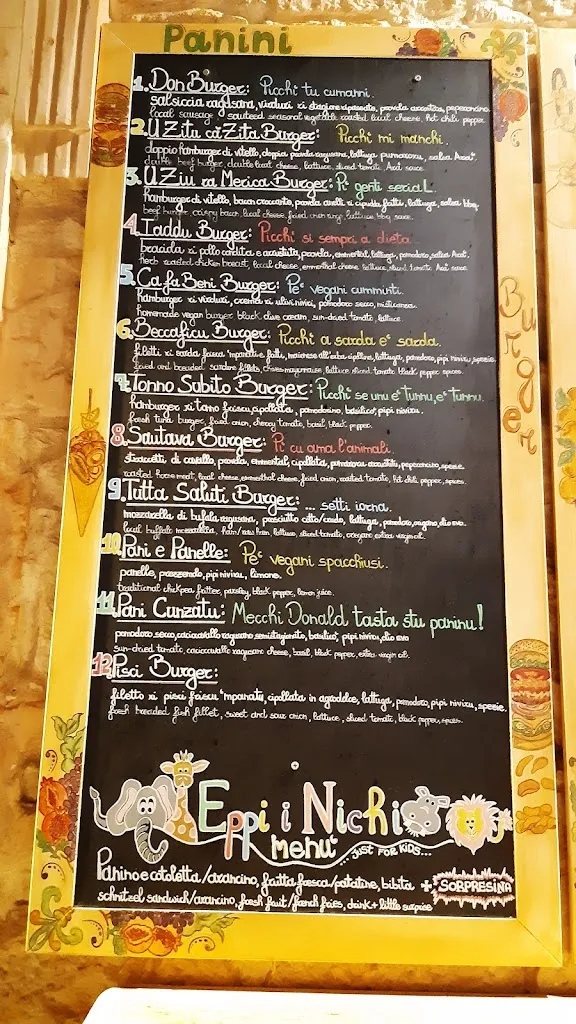 Panini
Burger
1. Don Burger: Picchi tu cumanni.
salsiccia ragusana, virduri ri stagione ripassate, provola arrostita, peperoncino
local sausage sauteed seasonal vegetable roasted local cheese, hot chili pepper
2. U Zitu cà Zita Burger: Picchì mi manchi.
doppio hamburger di vitello, doppia provola ragusana, lattuga pumaroru, salsa
double beef burger, double local cheese, lettuce, sliced tomato,
3. U Ziu ra Merica Burger: Pi genti seria L.
hamburger di vitello, bacon croccante, provola, cipudda fritti, lattuga, salsa bbq.
beef burger, crispy bacon, local cheese, fried onion rings, lettuce bbq sauce.
4. Taddu Burger: Picchì si sempri a dieta.
braciola ri pollo condita e arrostita, provola, emmental, lattuga, pomodoro, salsa
herb roasted chicken breast, local cheese, emmenthal cheese lettuce, sliced tomato
5. Ca fa Beni Burger: Pe' vegani cumminti.
hamburger ri virduri, crema ri ulivi nivici, pomodoro secco, misticanza.
homemade vegan burger black olive cream, sun-dried tomato, lettuce.
6. Beccaficu Burger: Picchì a sarda e' sarda.
filetti ri sarda fasciu 'mpanati e fatti, maionese all'erba cipollina, lattuga, pomodoro, pipi nivuru, spezie.
fried and breaded sardine fillets, chives mayonnaise, lettuce sliced tomato black pepper, spices.
7. Tonno Subito Burger: Picchì se unu e' Tunnu, e' Tunnu.
hamburger ri tonno friscu, cipollata, pomodorino, basilico, pipi nivuru.
fresh tuna burger, fried onion, cherry tomato, basil, black pepper.
8. Sautava Burger: Pi cu ama l'animali.
straccetti di cavallo, provola, emmental, cipollata, arrostutu, peperoncino, spezie.
roasted horse meat, local cheese, emmenthal cheese, fried onion, roasted tomato, hot chili pepper, spices.
9. Tutta Saluti Burger: ... setti iorna.
mozzarella di bufala ragusana, prosciutto cotto/crudo, lattuga, pomodoro, origano, olio evo.
local buffalo mozzarella, ham/raw ham, lettuce, sliced tomato, oregano extra virgin oil.
10. Pani e Panelle: Pe' vegani spacchiusi.
panelle, prezzemolo, pipi nivuru, limone.
traditional chickpea fritter, parsley, black pepper, lemon juice.
11. Pani Cunzatu: Mecchi Donald tasta stu paninu!
pomodoro secco, caciocavallo ragusano semistagionato, basilico, pipi nivuru, olio evo
sun-dried tomato, caciocavallo ragusano cheese, basil, black pepper, extra virgin oil.
12. Pisci Burger:
filetto ri pisci friscu 'mpanatu, cipollata in agrodolce, lattuga, pomodoro, pipi nivuru, spezie.
fresh breaded fish fillet, sweet and sour onion, lettuce, sliced tomato, black pepper, spices.
Eppi i Nichi
menu ...JUST FOR KIDS...
Panino e cotoletta/arancino, frutta fresca/patatine, bibita + SORPRESINA
schnitzel sandwich/arancino, fresh fruit/french fries, drink + little surprise